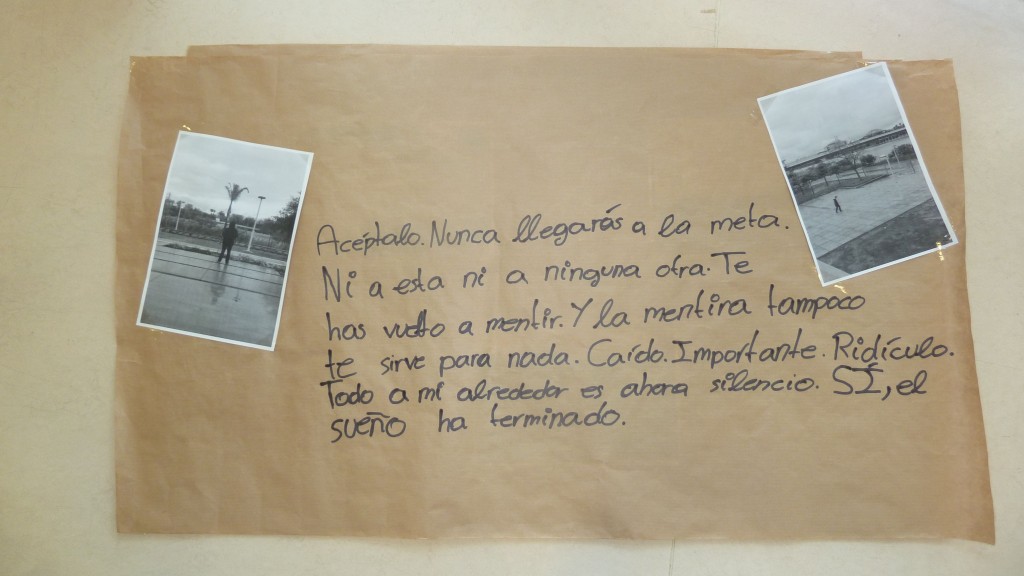 Acéptalo. Nunca llegarás a la meta.
Ni a esta ni a ninguna otra. Te
has vuelto a mentir. Y la mentira tampoco
te sirve para nada. Caído. Importante. Ridículo.
Todo a mi alrededor es ahora silencio. SÍ, el
sueño ha terminado.